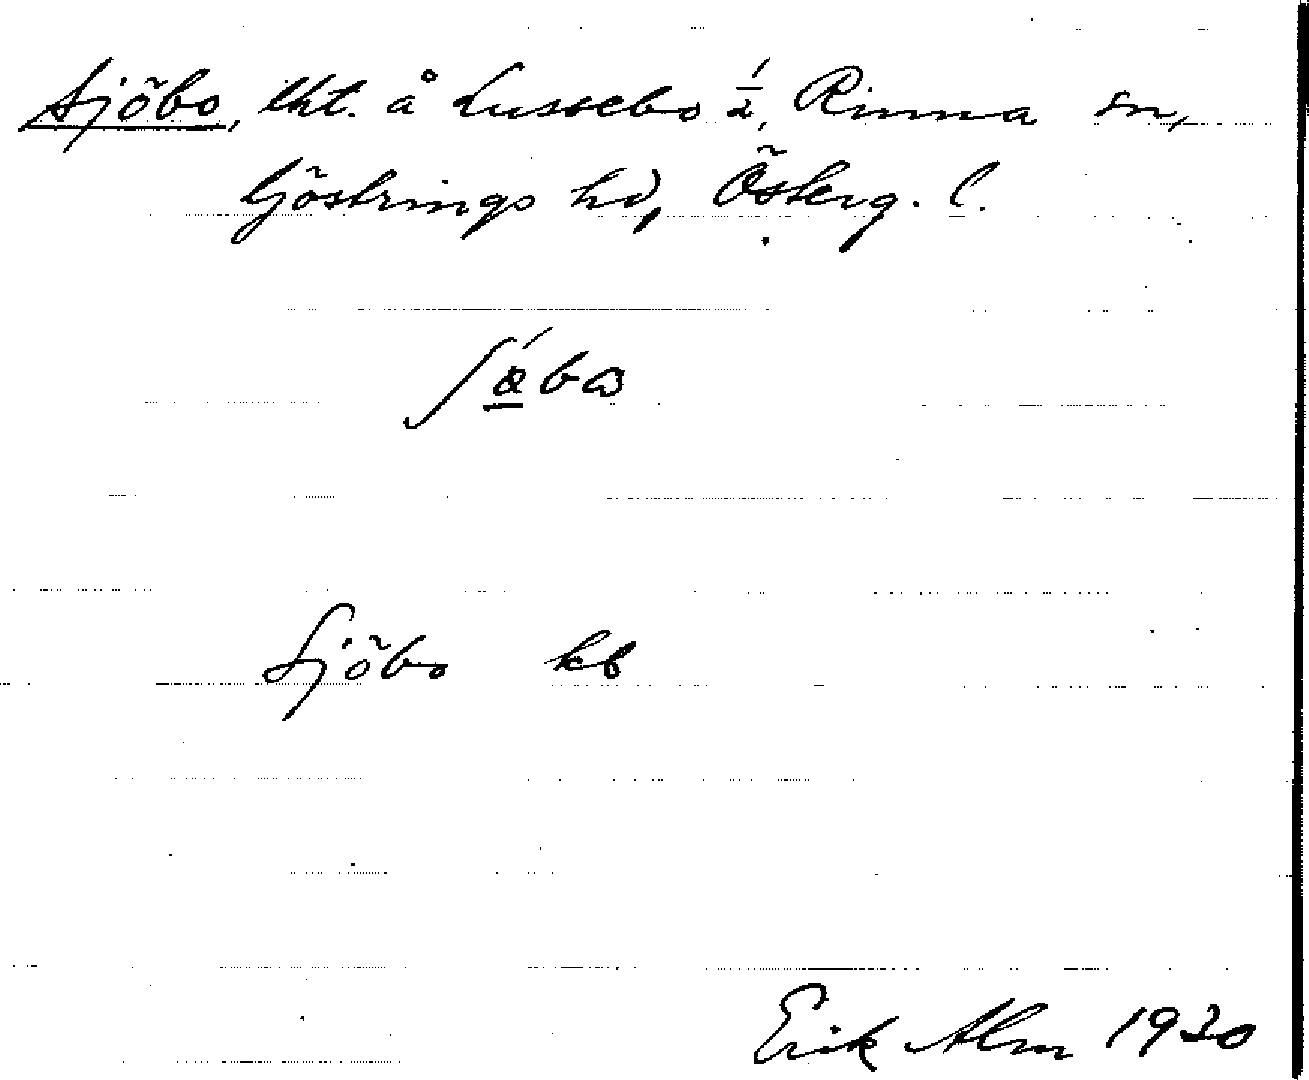 Sjöbo, lht. å Lussebo 1/2, Rinna sn,
Göstrings hd, Österg. l.
Sjöbo kb
Erik Alm 1930